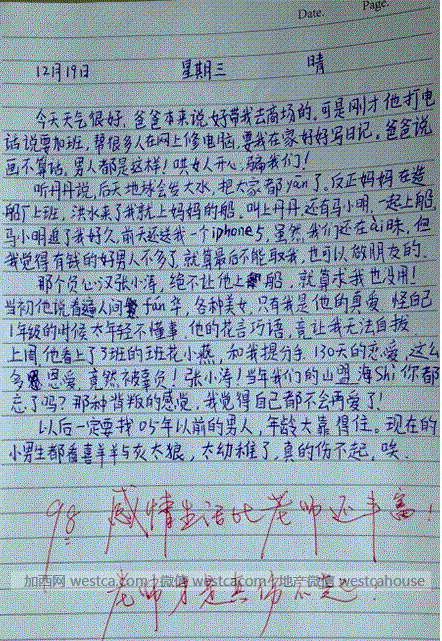 Date.
Page.
12月19日 星期三 晴
今天天气很好，爸爸本来说好带我去商场的，可是刚才他打电
话说要加班，帮很多人在网上修电脑，要我在家好好写日记。爸爸说
画不算话，男人都是这样！哄女人开心，骗我们！
听丹丹说，后天地球会发大水，把大家都yān了，反正妈妈在造
船厂上班，洪水来了我就上妈妈的船，叫上丹丹，还有马小明，一起上船，
马小明追了我好久，前天还送我一个iphone5，虽然我们还在ài昧，但
我觉得有钱的好男人不多了，就算最后不能取我，也可以做朋友的。
那个负心汉张小涛，绝不让他上船，就算求我也没用！
当初他说看遍人间fán华，各种美女，只有我是他的真爱，怪自己
1年级的时候太年轻不懂事，他的花言巧语，竟让我无法自拔
上周他看上了3班的班花小燕，和我提分手，130天的恋爱，这么
多恩爱，竟然被辜负！张小涛！当年我们的山盟海Shi你都
忘了吗？那种背叛的感觉，我觉得自己都不会再爱了！
以后一定要找05年以前的男人，年龄大靠得住。现在的
小男生都看喜羊羊与灰太狼，太幼稚了，真的伤不起，唉.
98 感情生活比老师还丰富！
加西网 westca.com 微信 westca-com 地产微信 westcahouse
老师伤不起